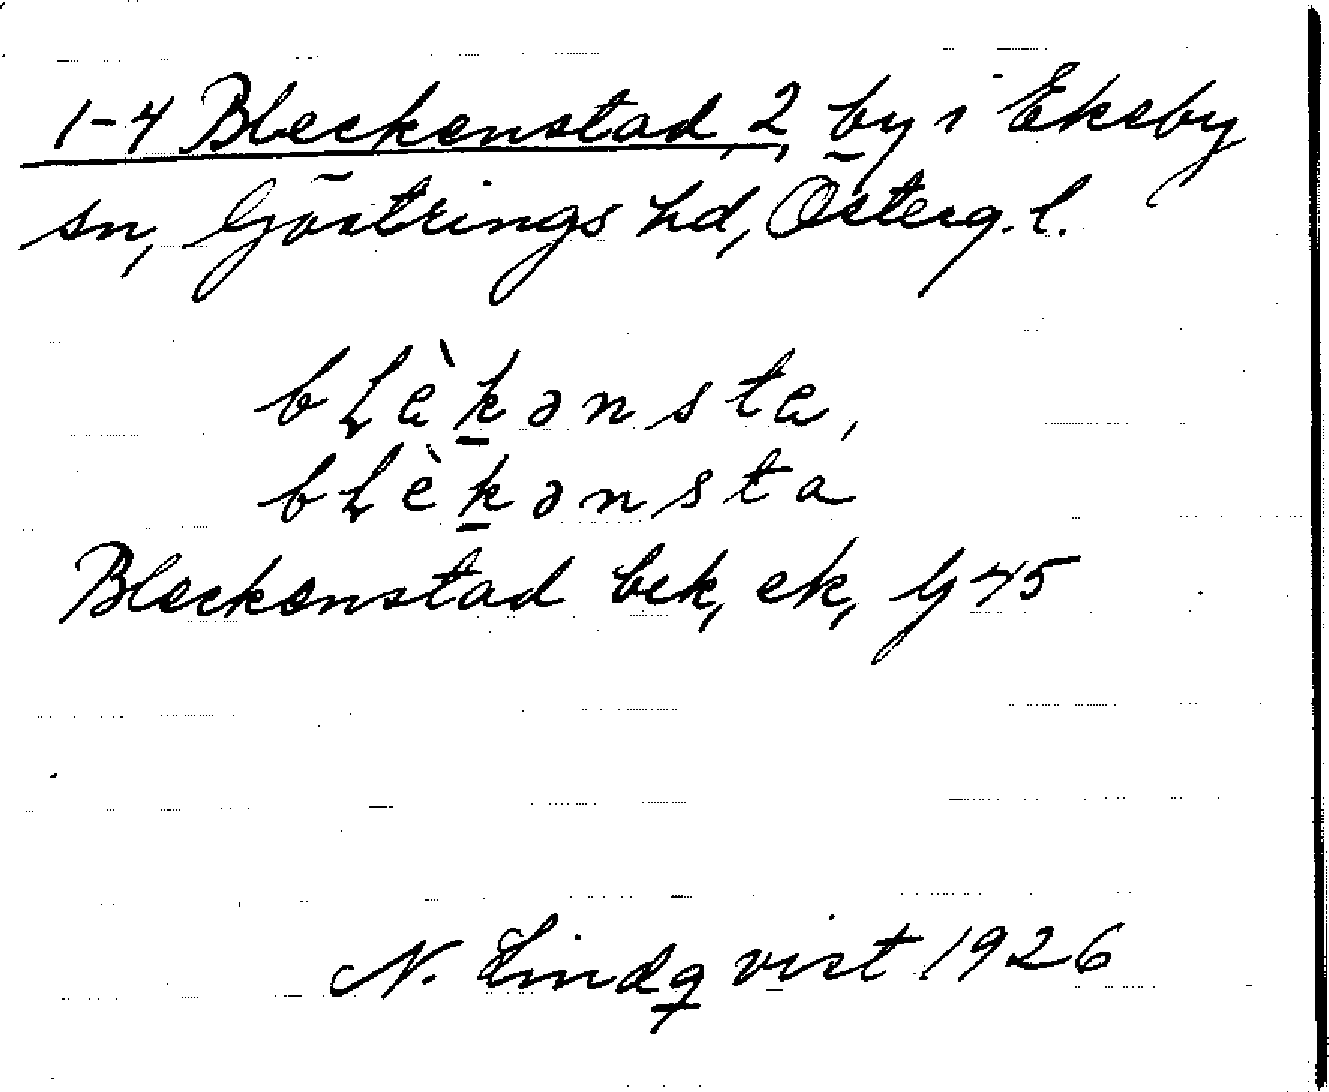 1-4 Bleckenstad, 2, by i Ekeby
sn, Göstrings hd, Österg. l.
bLèḵənsta,
bLèḵənsta
Bleckenstad bek, ek, G 45
N. Lindqvist 1926